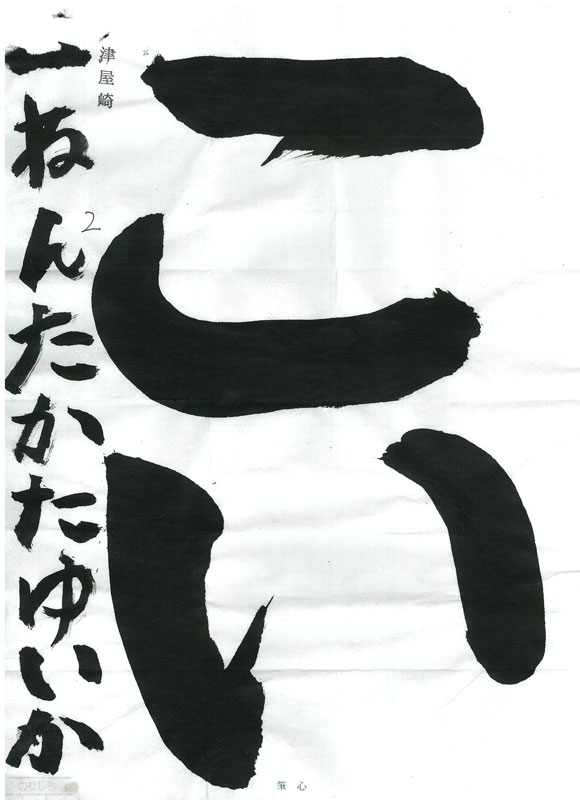 こい
津屋崎
2
一ねんたかたゆいか
筆心